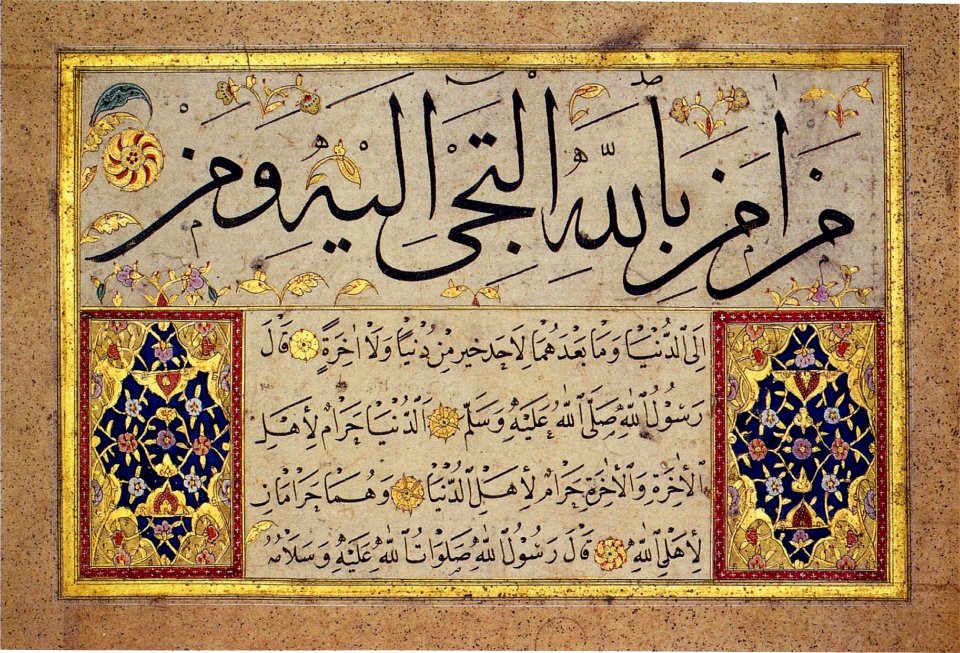 من امن بالله التجى اليه ومن
الى الدُّنْيَا وَمَا بَعْدَهُمَا لِاَحَدٍ خَيْرٌ مِنْ دُنْيَا وَلَا اٰخِرَةٍ قَالَ
رَسُولُ اللهِ صَلَّى اللهُ عَلَيْهِ وَسَلَّمَ اَلدُّنْيَا حَرَامٌ لِأَهْلِ
الْاٰخِرَةِ وَالْاٰخِرَةُ حَرَامٌ لِأَهْلِ الدُّنْيَا وَهُمَا حَرَامَانِ
لِأَهْلِ اللهِ قَالَ رَسُولُ اللهِ صَلَوَاتُ اللهِ عَلَيْهِ وَسَلَامُهُ